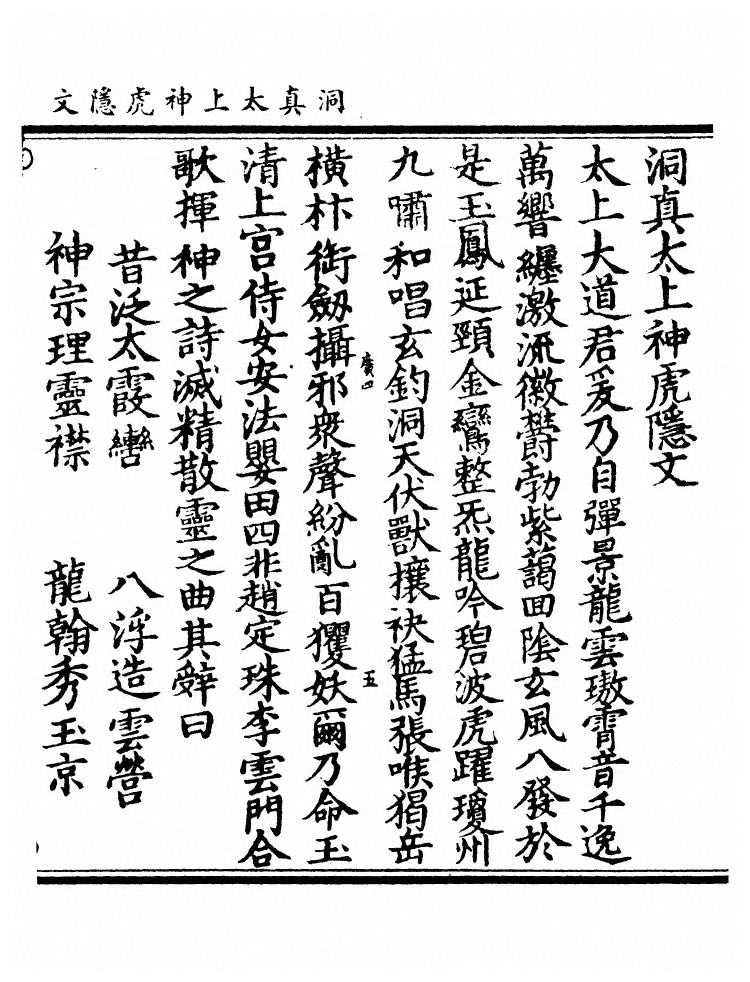 洞真太上神虎隱文
洞真太上神虎隱文
太上大道君爰乃自彈景龍雲璈霄音千逸
萬響纏激流徽欝勃紫藹回陰玄風八發於
是玉鳳延頸金鸞整炁龍吟碧波虎躍瓊州
九嘯和唱玄鈞洞天伏獸攘袂猛馬張喉猖岳
橫抃衛劔攝邪衆聲紛亂百玃妖爾乃命玉
廣四
五
清上宮侍女安法嬰田四非趙定珠李雲門合
歌揮神之詩滅精散靈之曲其辭曰
昔泛太霞轡 八浮造雲營
神宗理靈襟 龍翰秀玉京